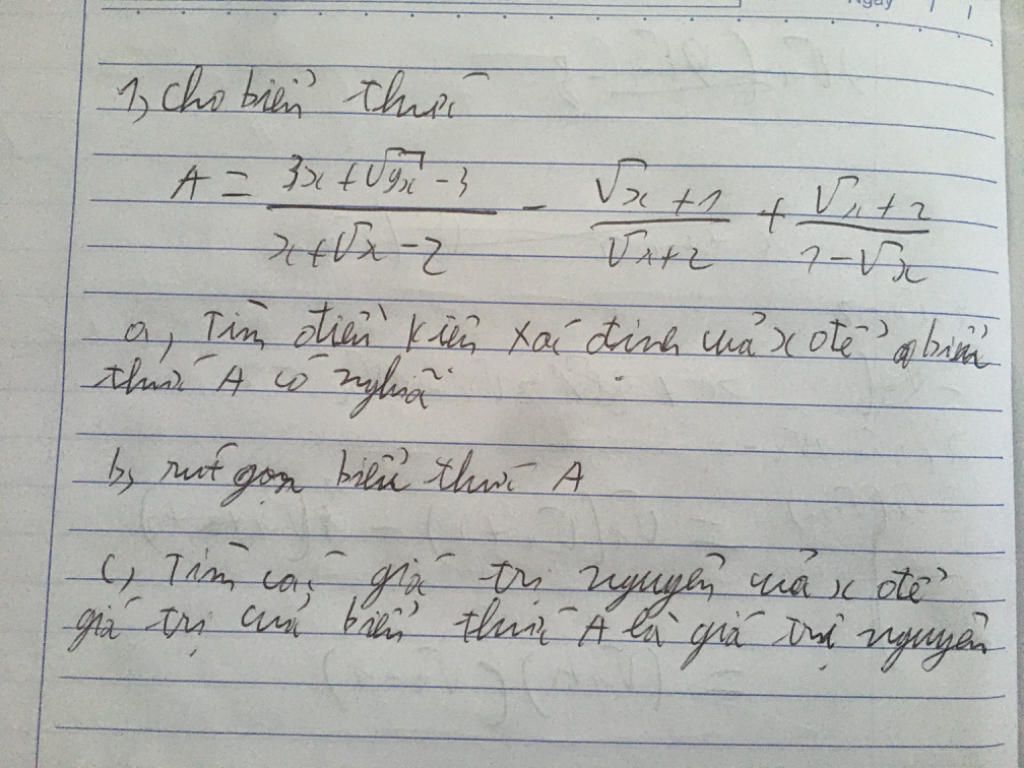 Ngày
1, cho biểu thức
A = \frac{3x + \sqrt{9x} - 3}{x + \sqrt{x} - 2} - \frac{\sqrt{x} + 1}{\sqrt{x} + 2} + \frac{\sqrt{x} + 2}{1 - \sqrt{x}}
a, Tìm điều kiện xác định của x để biểu
thức A có nghĩa
b, rút gọn biểu thức A
c, Tìm các giá trị nguyên của x để
giá trị của biểu thức A là giá trị nguyên